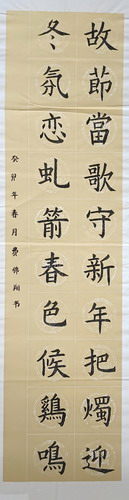 故節當歌守新年把燭迎
冬氛恋虬箭春色候鷄鳴
癸卯年春月费佛翔书